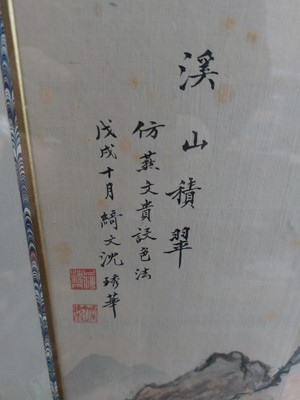 溪山積翠
仿燕文貴設色法
戊戌十月綺文沈琇華